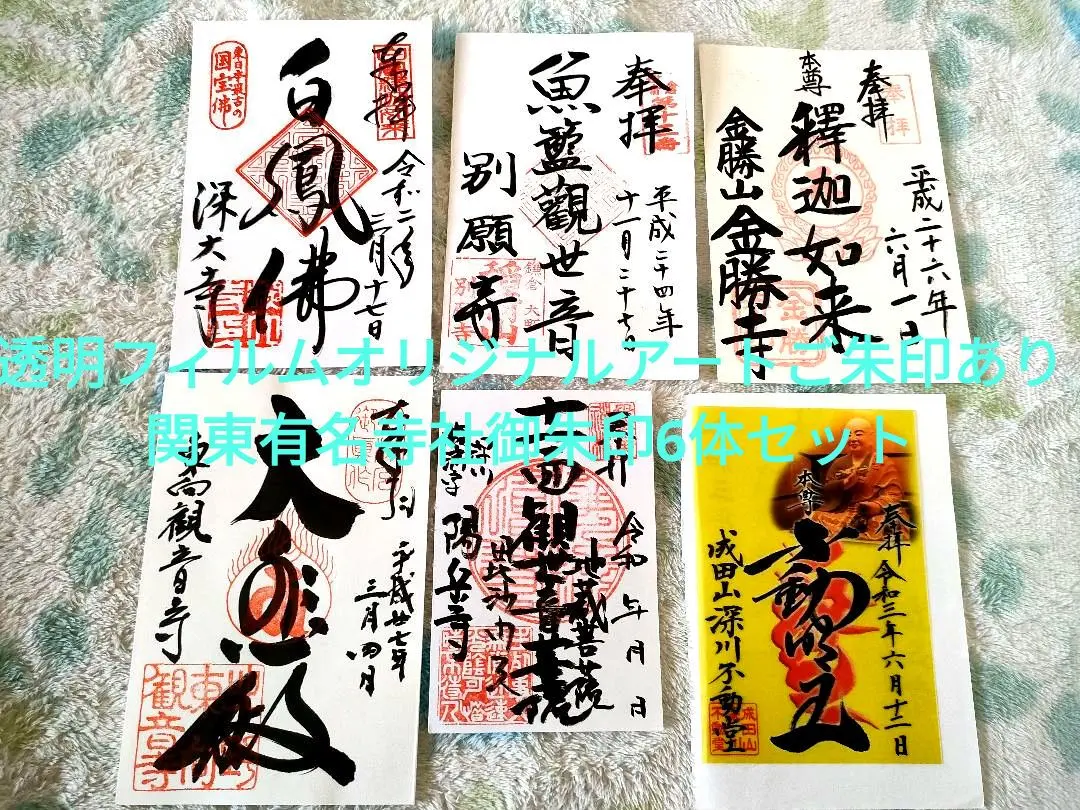 奉拝
令和二年
三月十七日
白鳳佛
深大寺
東日本最古の
国宝佛
奉拝
平成二十四年
十一月二十七日
魚籃觀世音
別願寺
奉拝
平成二十六年
六月一日
本尊
釋迦如来
金勝山金勝寺
透明フィルムオリジナルアートご朱印あり
関東有名寺社御朱印6体セット
平成廿七年
三月四月
大悲殿
東向観音寺
令和
年
月
日
地蔵菩薩
十一面観世音菩薩
毘沙門天
陽岳寺
奉拝
令和三年六月十二日
本尊
不動明王
成田山深川不動堂